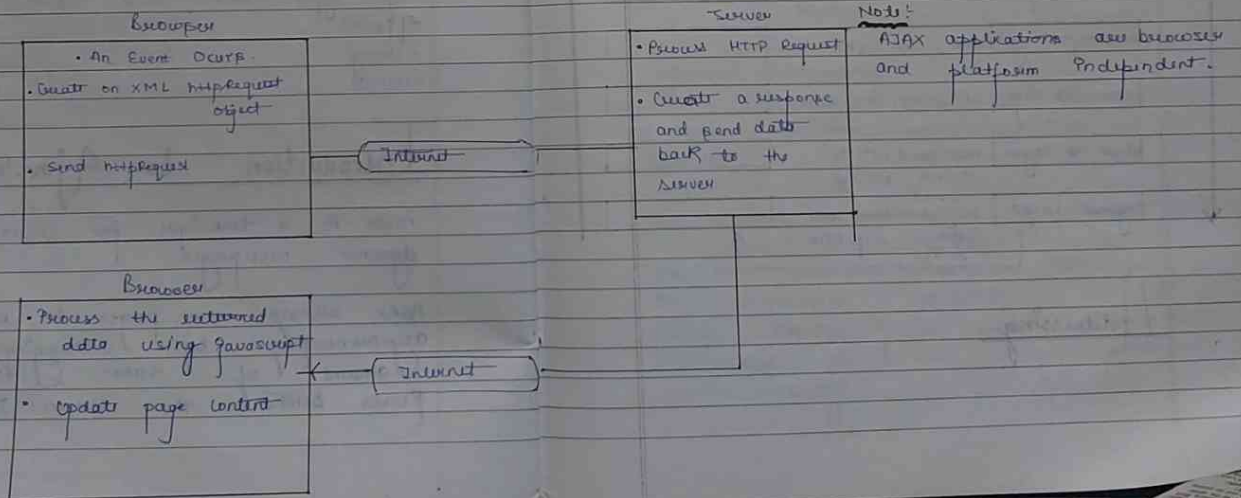 Browser
• An Event Ocurs.
• Create an XML httpRequest
object
• Send httpRequest
Internet
Server
• Process HTTP Request
• Create a response
and send data
back to the
server
Note:
AJAX applications are browser
and platform independent.
Browser
• Process the returned
data using javascript
• Update page content
Internet